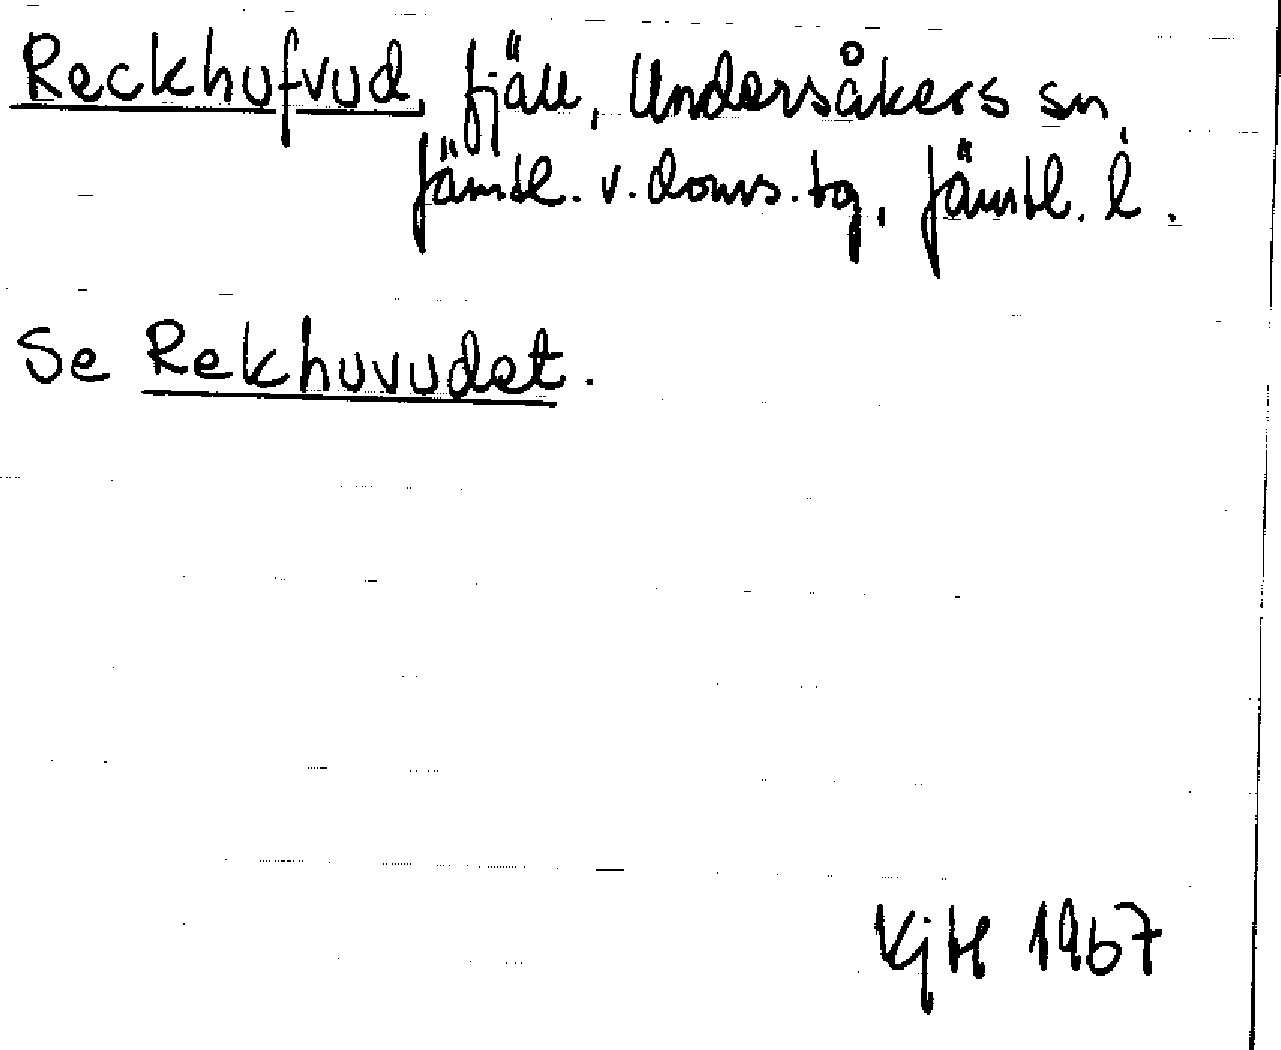 Reckhufvud, fjäll, Undersåkers sn,
Jämtl. v. doms. tg, Jämtl. l.
Se Rekhuvudet.
KjH 1967